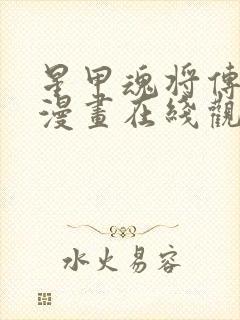 星甲魂将傳
漫畫在綫觀
水火易容